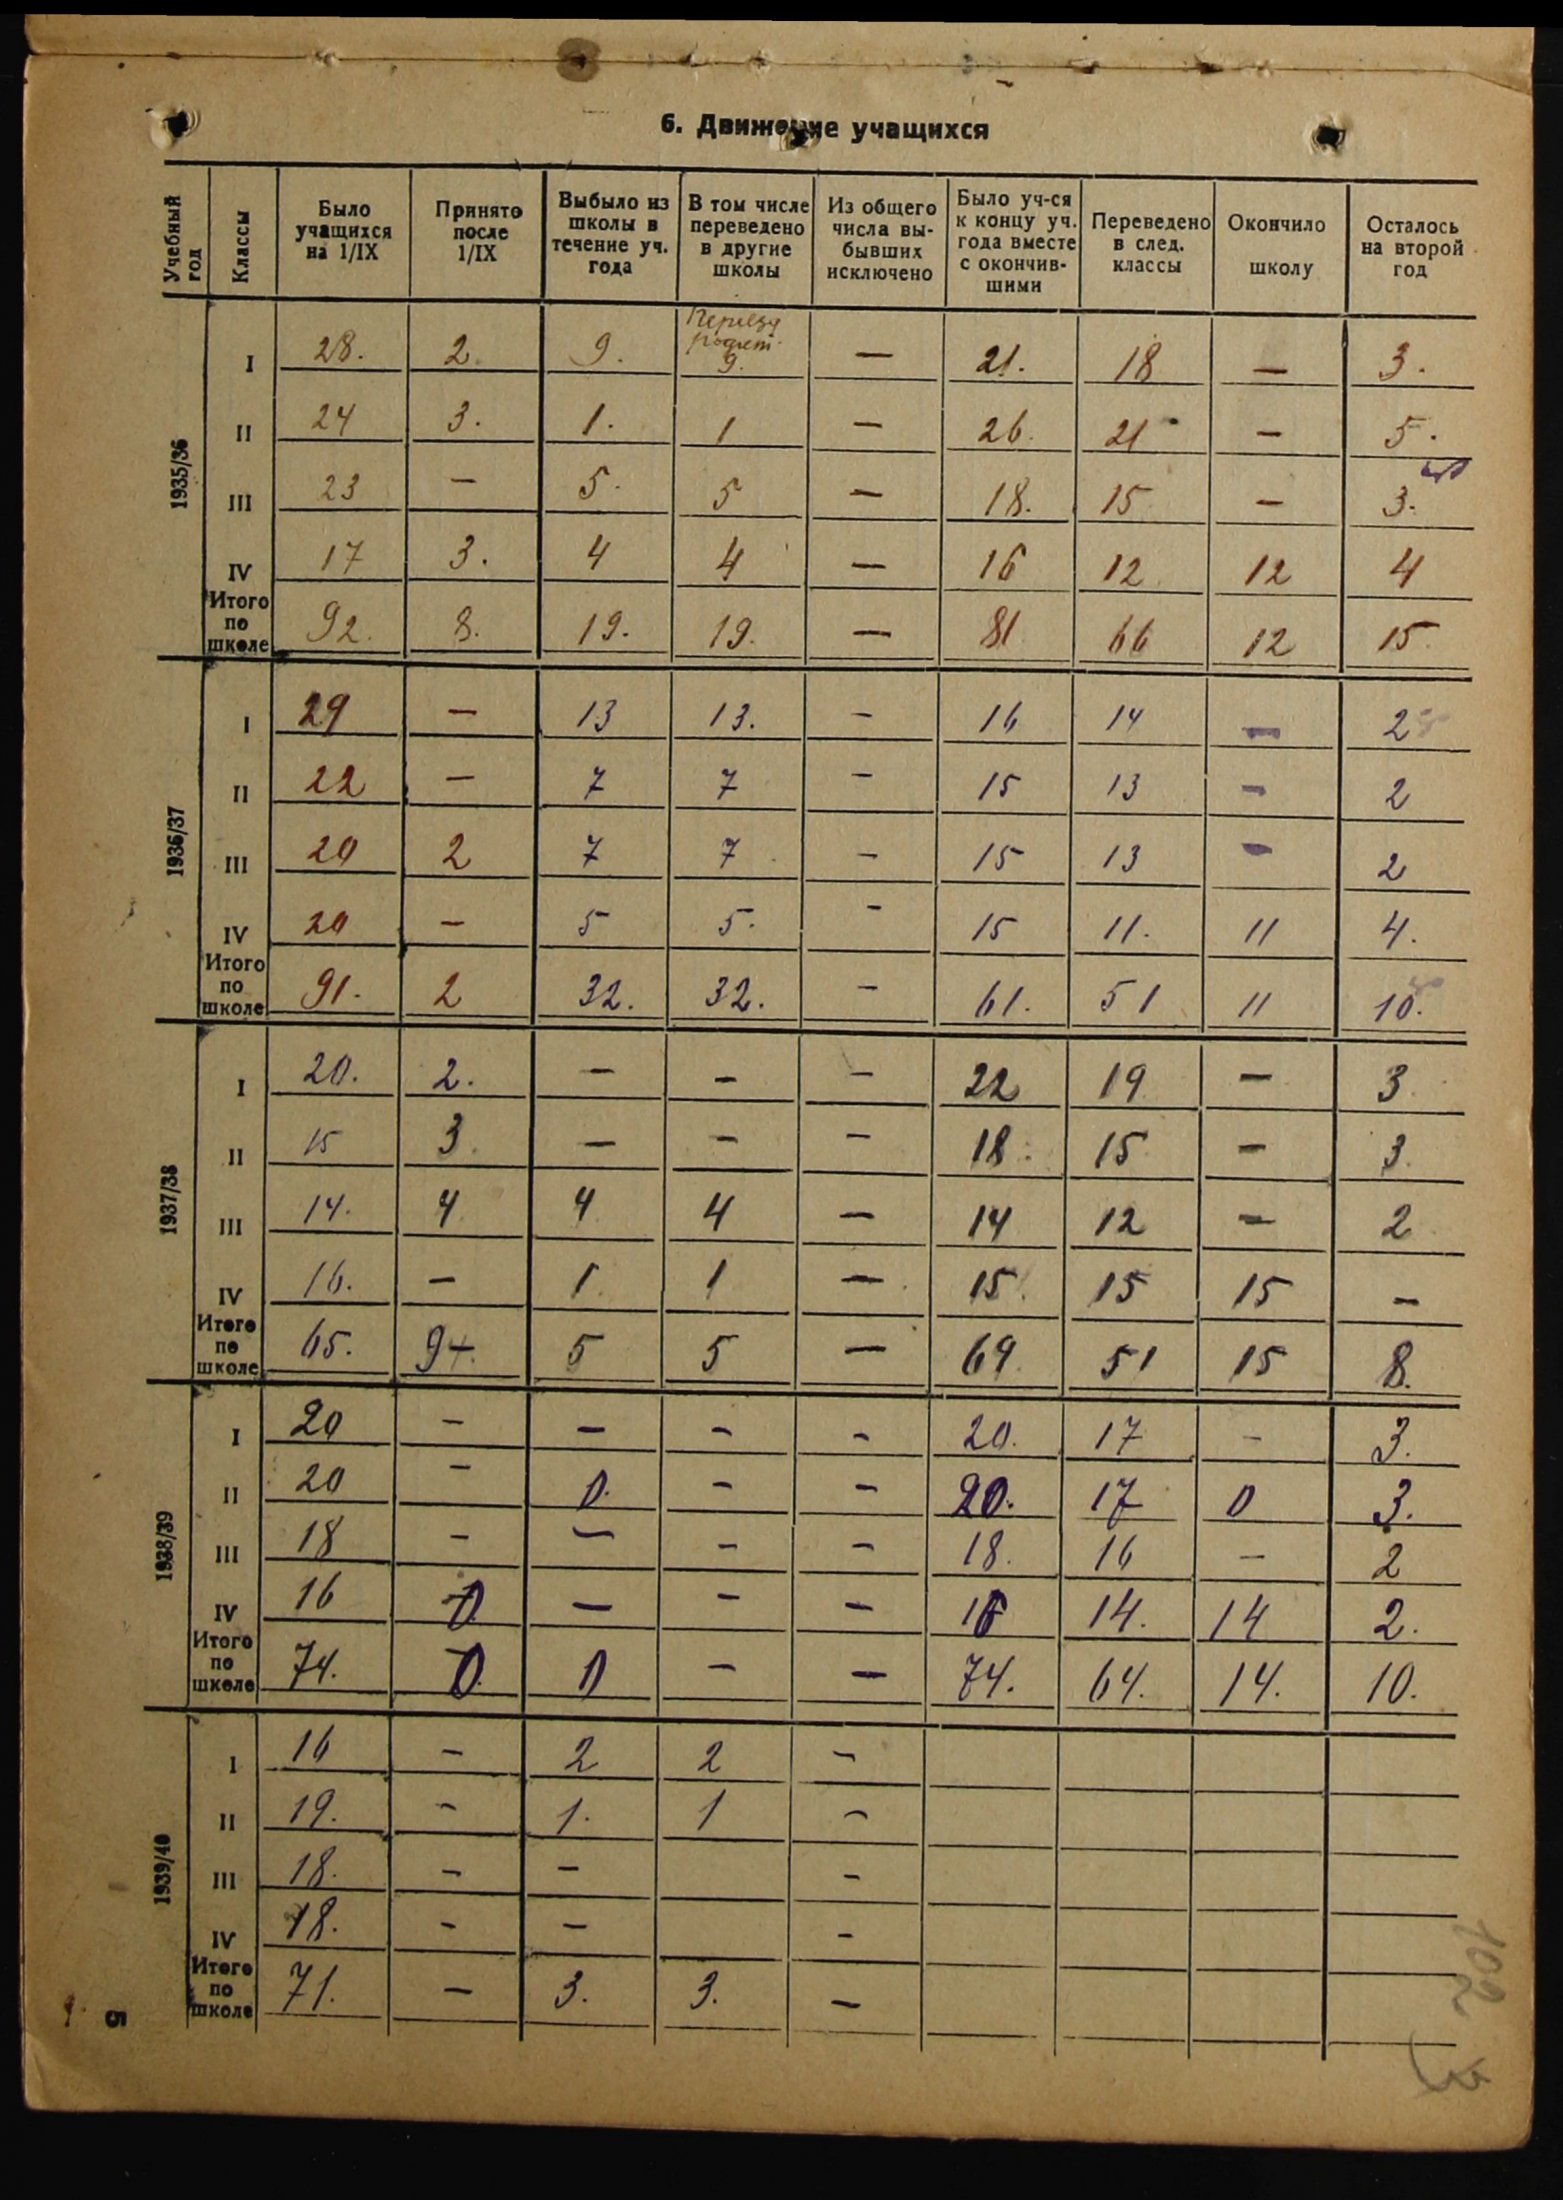 6. Движение учащихся
Учебный год | Классы | Было учащихся на 1/IX | Принято после 1/IX | Выбыло из школы в течение уч. года | В том числе переведено в другие школы | Из общего числа вы-бывших исключено | Было уч-ся к концу уч. года вместе с окончив-шими | Переведено в след. классы | Окончило школу | Осталось на второй год
1935/36
I | 28. | 2. | 9. | 9. | — | 21. | 18 | — | 3.
II | 24 | 3. | 1. | 1 | — | 26. | 21 | — | 5.
III | 23 | — | 5. | 5 | — | 18. | 15 | — | 3.
IV | 17 | 3. | 4 | 4 | — | 16 | 12 | 12 | 4
Итого по школе | 92. | 8. | 19. | 19. | — | 81 | 66 | 12 | 15
1936/37
I | 29 | — | 13 | 13. | — | 16 | 14 | — | 2
II | 22 | — | 7 | 7 | — | 15 | 13 | — | 2
III | 20 | 2 | 7 | 7 | — | 15 | 13 | — | 2
IV | 20 | — | 5 | 5. | — | 15 | 11. | 11 | 4.
Итого по школе | 91. | 2 | 32. | 32. | — | 61. | 51 | 11 | 10.
1937/38
I | 20. | 2. | — | — | — | 22 | 19 | — | 3
II | 15 | 3 | — | — | — | 18. | 15 | — | 3.
III | 14. | 4 | 4 | 4 | — | 14 | 12 | — | 2
IV | 16. | — | 1 | 1 | — | 15. | 15 | 15 | —
Итого по школе | 65. | 9 | 5 | 5 | — | 69. | 51 | 15 | 8.
1938/39
I | 20 | — | — | — | — | 20. | 17 | — | 3.
II | 20 | — | 0. | — | — | 20. | 17 | 0 | 3.
III | 18 | — | — | — | — | 18. | 16 | — | 2
IV | 16 | 0 | — | — | — | 16 | 14. | 14 | 2.
Итого по школе | 74. | 0 | 0 | — | — | 74. | 64. | 14. | 10.
1939/40
I | 16 | — | 2 | 2 | —
II | 19. | — | 1. | 1 | —
III | 18. | — | — | | —
IV | 18. | — | — | | —
Итого по школе | 71. | — | 3. | 3. | —
5
102